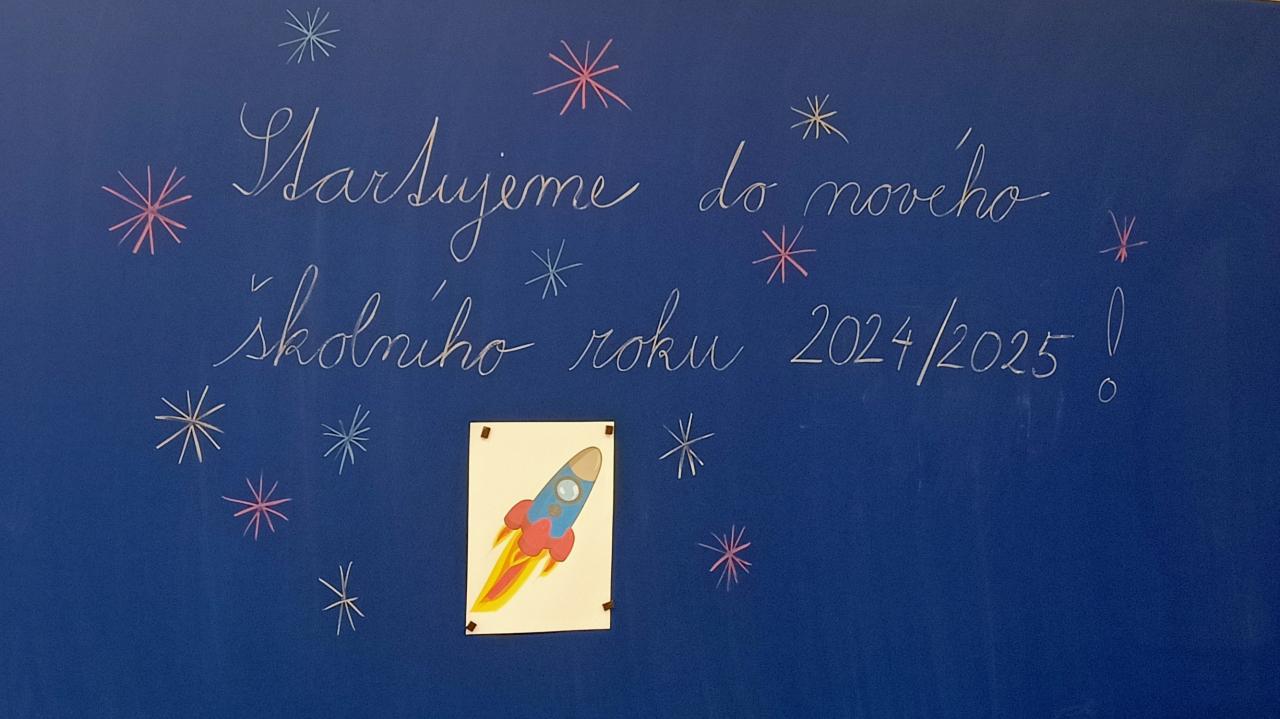 Startujeme do nového
školního roku 2024/2025!